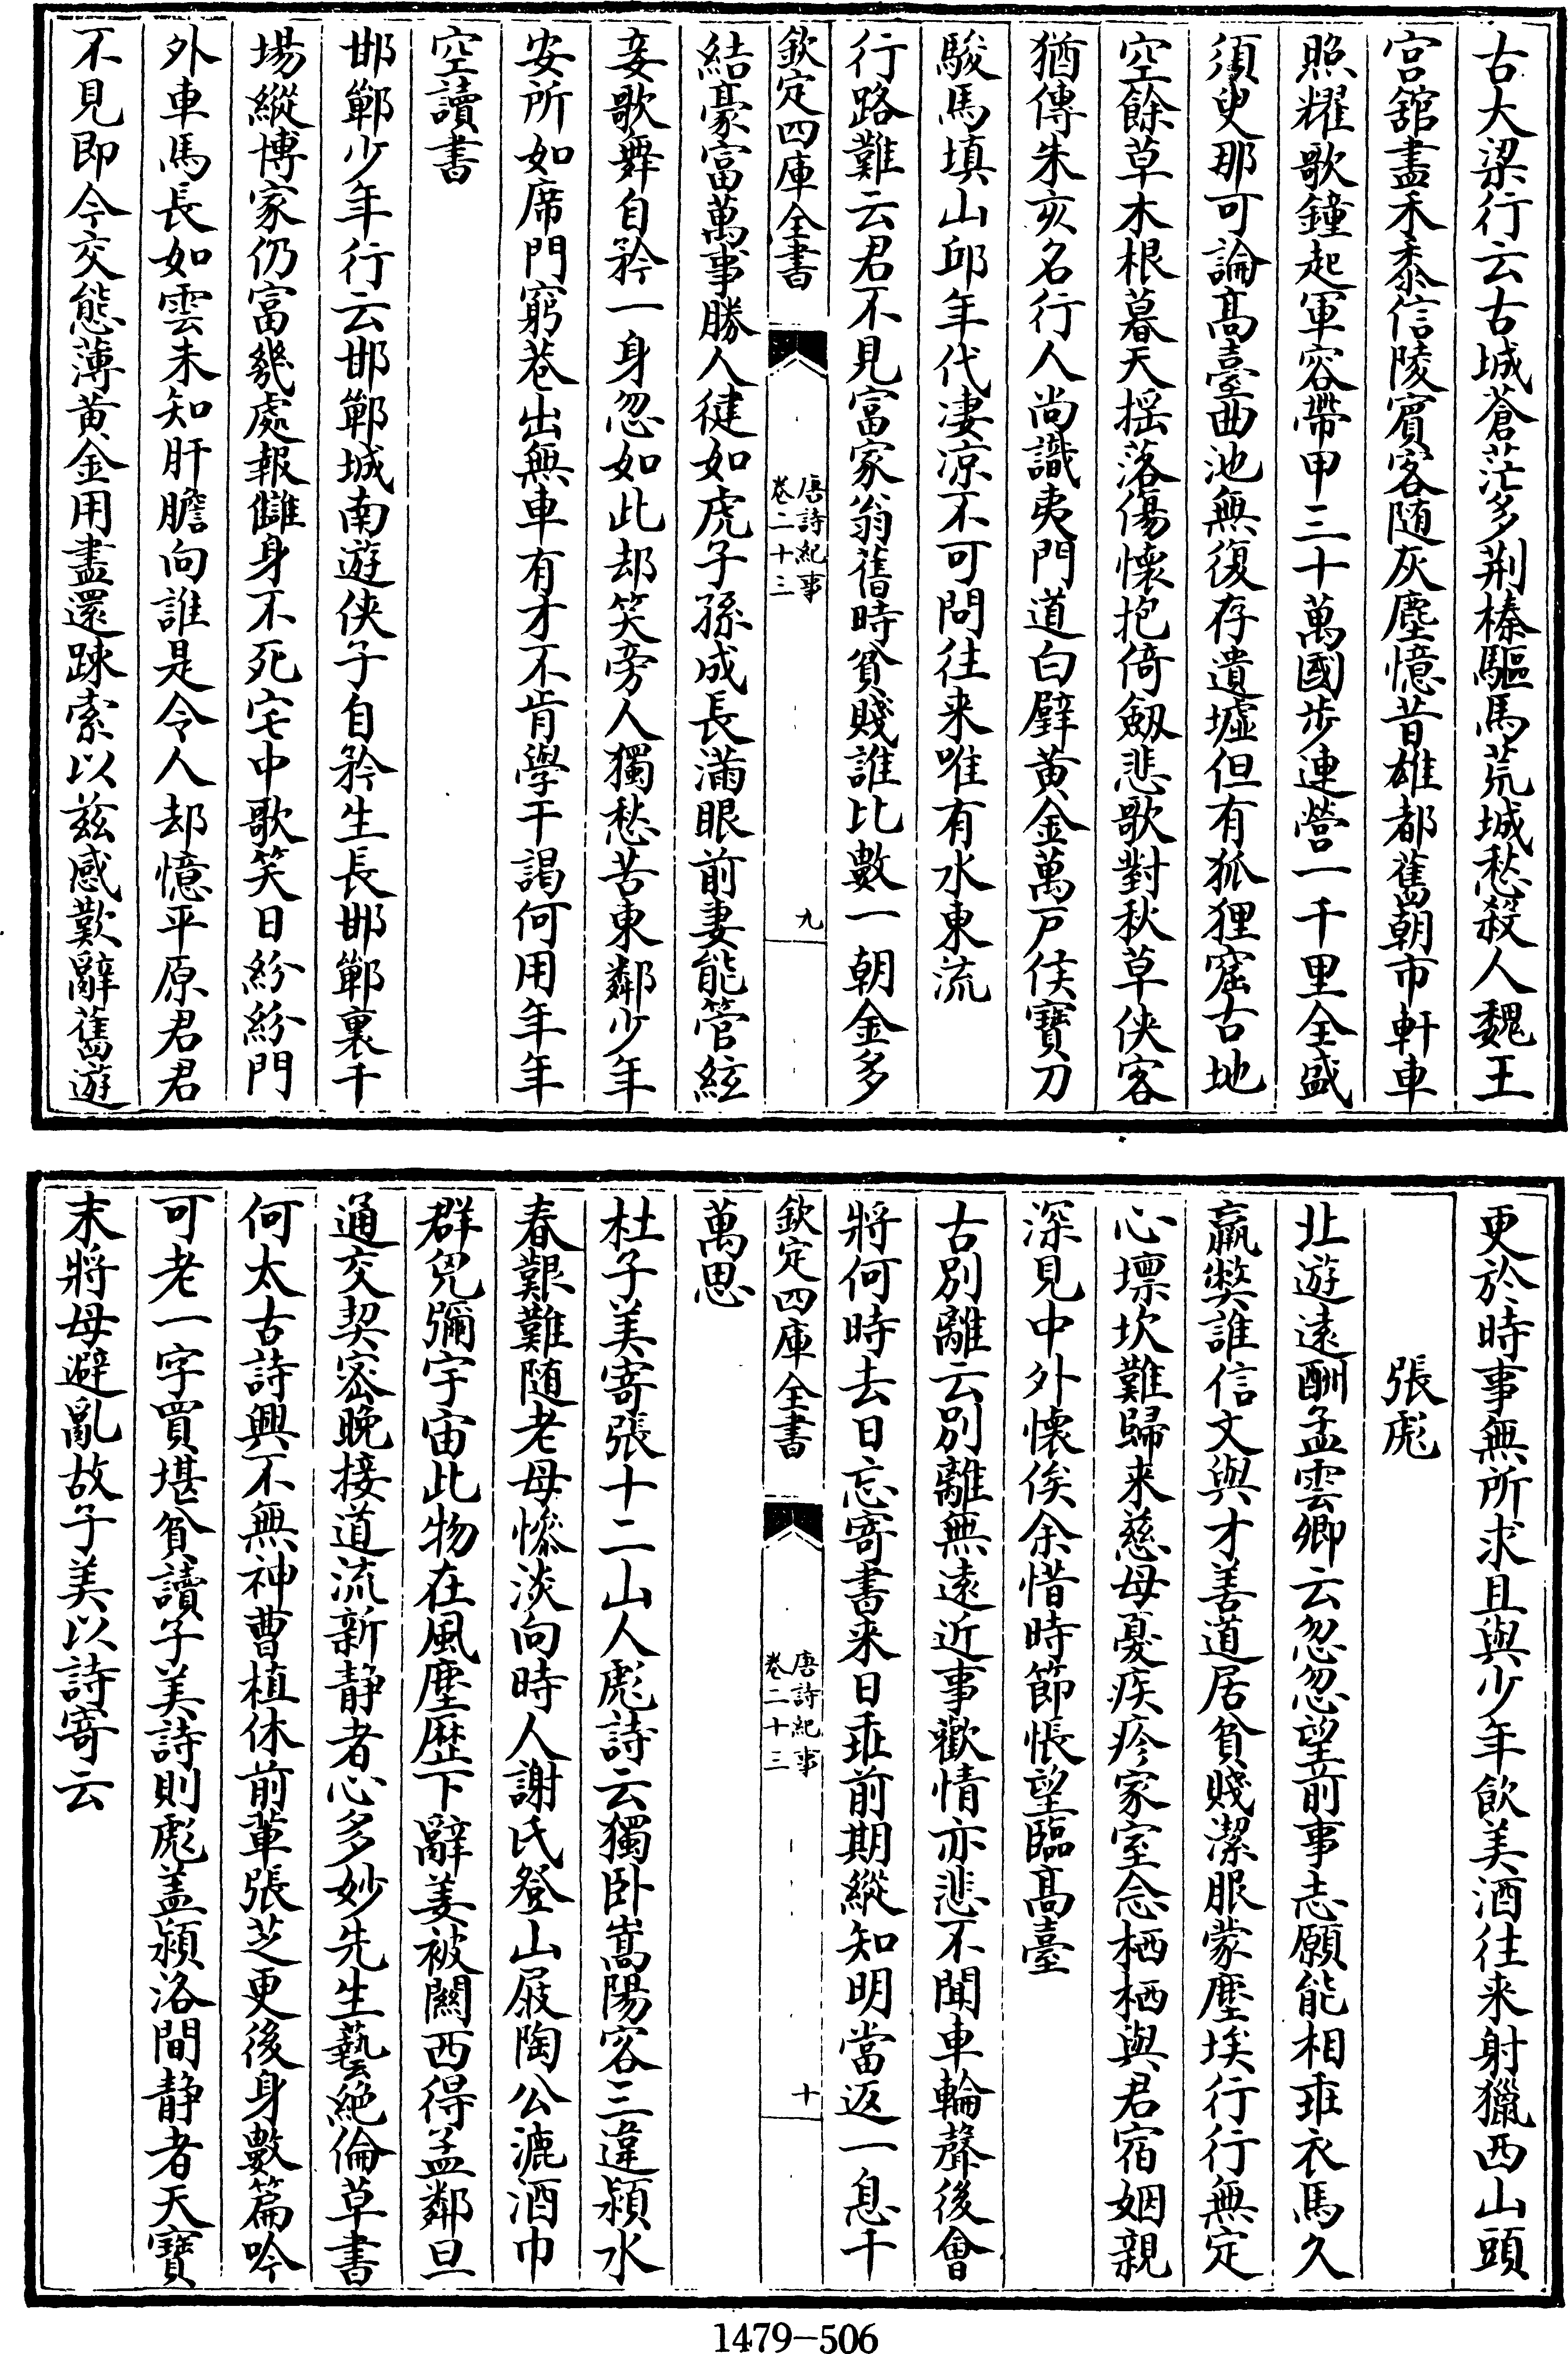 古大梁行云古城蒼茫多荆榛驅馬荒城愁殺人魏王
宫舘盡禾黍信陵賓客隨灰塵憶昔雄都舊朝市軒車
照耀歌鐘起軍容帶甲三十萬國步連營一千里全盛
須臾那可論髙臺曲池無復存遺墟但有狐狸窟古地
空餘草木根暮天摇落傷懷抱倚劔悲歌對秋草俠客
猶傳朱亥名行人尚識夷門道白璧黄金萬戸侯寶刀
駿馬填山邱年代凄凉不可問往來唯有水東流
行路難云君不見富家翁舊時貧賤誰比數一朝金多
欽定四庫全書
唐詩紀事
卷二十三
九
結豪富萬事勝人健如虎子孫成長滿眼前妻能管絃
妾歌舞自矜一身忽如此却笑旁人獨愁苦東鄰少年
安所如席門窮巷出無車有才不肯學干謁何用年年
空讀書
邯鄲少年行云邯鄲城南遊俠子自矜生長邯鄲裏千
場縱博家仍富幾處報讎身不死宅中歌笑日紛紛門
外車馬長如雲未知肝膽向誰是令人却憶平原君君
不見即今交態薄黄金用盡還踈索以兹感歎辭舊遊
更於時事無所求且與少年飲美酒往來射獵西山頭
張彪
北遊遠酬孟雲卿云忽忽望前事志願能相乖衣馬久
羸弊誰信文與才善道居貧賤潔服蒙塵埃行行無定
心壈坎難歸來慈母憂疾疹家室念栖栖與君宿姻親
深見中外懷俟余惜時節悵望臨髙臺
古别離云别離無遠近事歡情亦悲不聞車輪聲後會
將何時去日忘寄書來日乖前期縱知明當返一息千
欽定四庫全書
唐詩紀事
卷二十三
十
萬思
杜子美寄張十二山人彪詩云獨卧嵩陽客三違潁水
春艱難随老母慘淡向時人謝氏登山屐陶公漉酒巾
群兇彌宇宙此物在風塵歴下辭姜被關西得孟鄰旦
通交契密晚接道流新静者心多妙先生藝絶倫草書
何太古詩興不無神曹植休前輩張芝更後身數篇吟
可老一字買堪貧讀子美詩則彪盖潁洛間静者天寶
末將母避亂故子美以詩寄云
1479-506